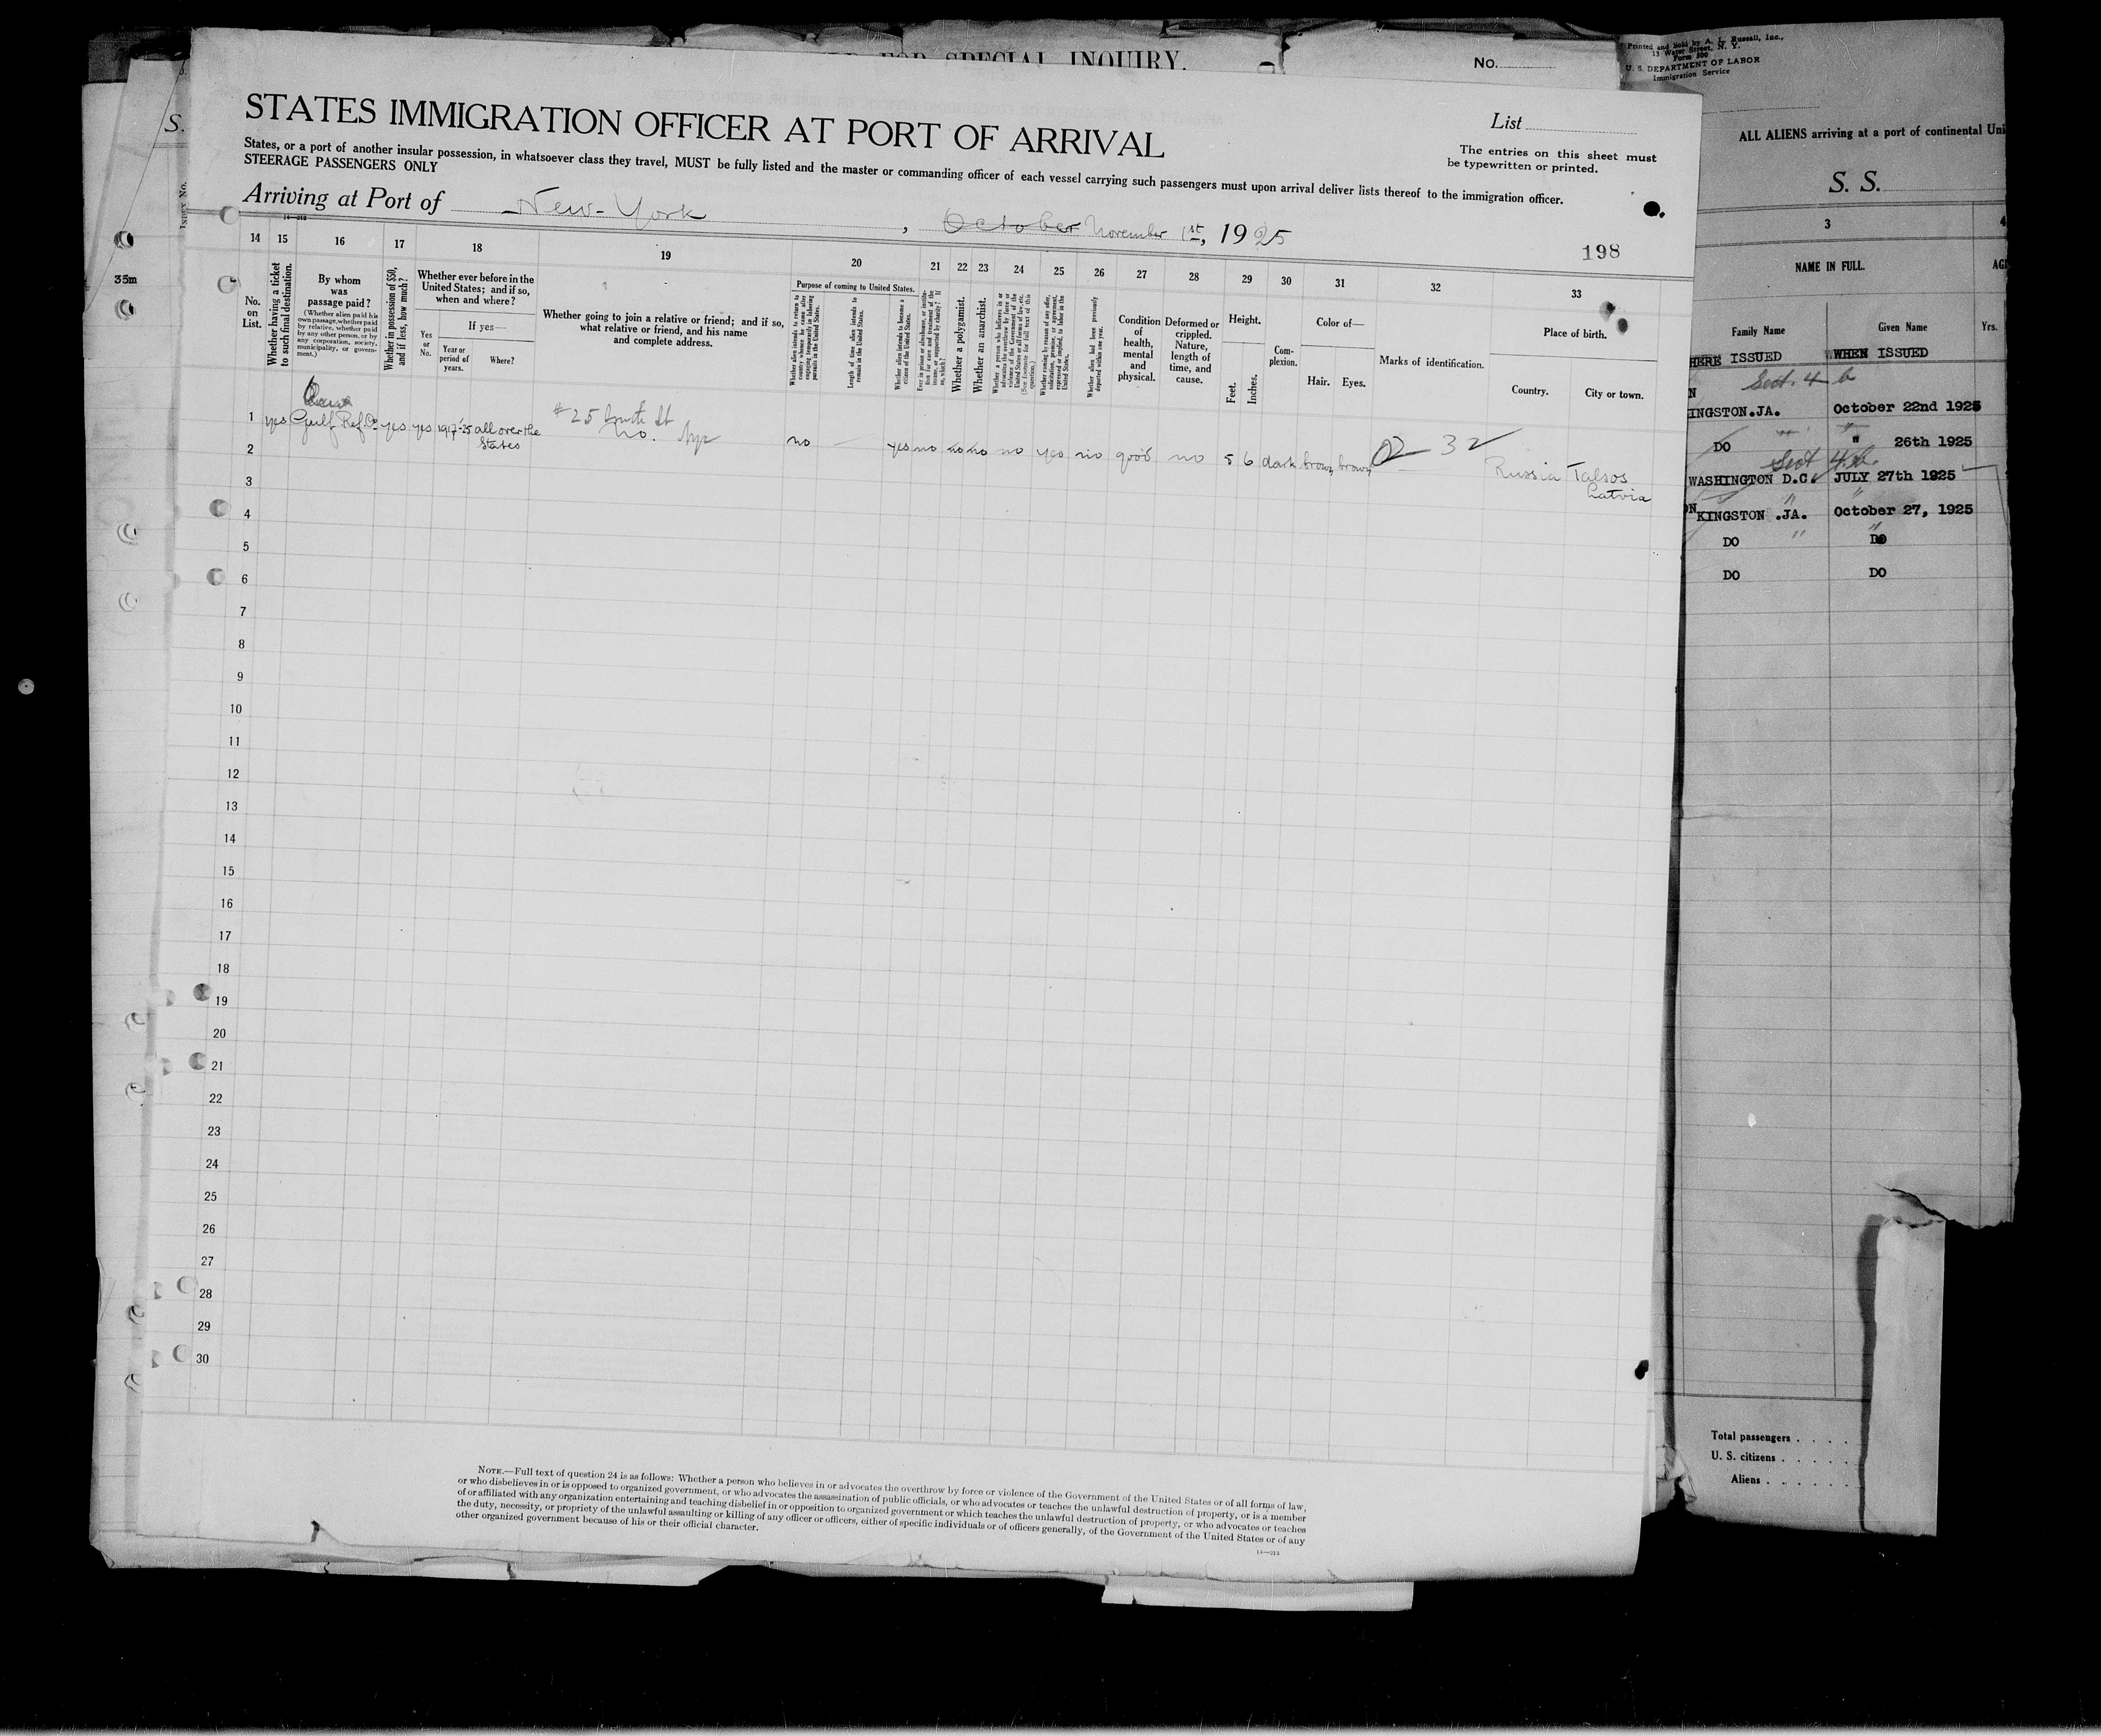 FOR SPECIAL INQUIRY.
No.
S.
STATES IMMIGRATION OFFICER AT PORT OF ARRIVAL
List
States, or a port of another insular possession, in whatsoever class they travel, MUST be fully listed and the master or commanding officer of each vessel carrying such passengers must upon arrival deliver lists thereof to the immigration officer.
STEERAGE PASSENGERS ONLY
The entries on this sheet must
be typewritten or printed.
Arriving at Port of New-York, October November 1st, 1925
198
35m
14 15 16 17 18 19 20 21 22 23 24 25 26 27 28 29 30 31 32 33
No.
on
List.
Whether having a ticket
to such final destination.
By whom
was
passage paid?
(Whether alien paid his
own passage, whether paid
by relative, whether paid
by any other person, or by
any corporation, society,
municipality, or govern-
ment.)
Whether in possession of $50,
and if less, how much?
Whether ever before in the
United States; and if so,
when and where?
Yes
or
No.
If yes—
Year or
period of
years.
Where?
Whether going to join a relative or friend; and if so,
what relative or friend, and his name
and complete address.
Purpose of coming to United States.
Whether alien intends to return to
country whence he came after
engaging temporarily in laboring
pursuits in the United States.
Length of time alien intends to
remain in the United States.
Whether alien intends to become a
citizen of the United States.
Ever in prison or almshouse, or institu-
tion for care and treatment of the
insane, or supported by charity? If
so, which?
Whether a polygamist.
Whether an anarchist.
Whether a person who believes in or
advocates the overthrow by force or
violence of the Government of the
United States or all forms of law, etc.
(See footnote for full text of this
question.)
Whether coming by reason of any offer,
solicitation, promise, or agreement,
expressed or implied, to labor in the
United States.
Whether alien had been previously
deported within one year.
Condition
of
health,
mental
and
physical.
Deformed or
crippled.
Nature,
length of
time, and
cause.
Height.
Feet.
Inches.
Com-
plexion.
Color of—
Hair. Eyes.
Marks of identification.
Place of birth.
Country. City or town.
1 yes Gulf Ref Co yes yes 1917-25 all over the
States
no. no — yes no no no no yes no good no 5 6 dark brown brown Russia Talsos
Latvia
2
3
4
5
6
7
8
9
10
11
12
13
14
15
16
17
18
19
20
21
22
23
24
25
26
27
28
29
30
NOTE.—Full text of question 24 is as follows: Whether a person who believes in or advocates the overthrow by force or violence of the Government of the United States or of all forms of law,
or who disbelieves in or is opposed to organized government, or who advocates the assassination of public officials, or who advocates or teaches the unlawful destruction of property, or is a member
of or affiliated with any organization entertaining and teaching disbelief in or opposition to organized government or which teaches the unlawful destruction of property, or who advocates or teaches
the duty, necessity, or propriety of the unlawful assaulting or killing of any officer or officers, either of specific individuals or of officers generally, of the Government of the United States or of any
other organized government because of his or their official character.
14—213
Printed and Sold by A. L. Russell, Inc.,
15 Water Street, N. Y.
Form 500
U. S. DEPARTMENT OF LABOR
Immigration Service
ALL ALIENS arriving at a port of continental Uni
S. S.
3 4
NAME IN FULL. AG
Family Name Given Name Yrs.
HERE ISSUED WHEN ISSUED
Sect. 4 b
INGSTON.JA. October 22nd 1925
DO " 26th 1925
Sect 4.b.
WASHINGTON D.C. JULY 27th 1925
KINGSTON .JA. October 27, 1925
DO " DO
DO DO
Total passengers . . . .
U. S. citizens . . . . .
Aliens . . . . . .